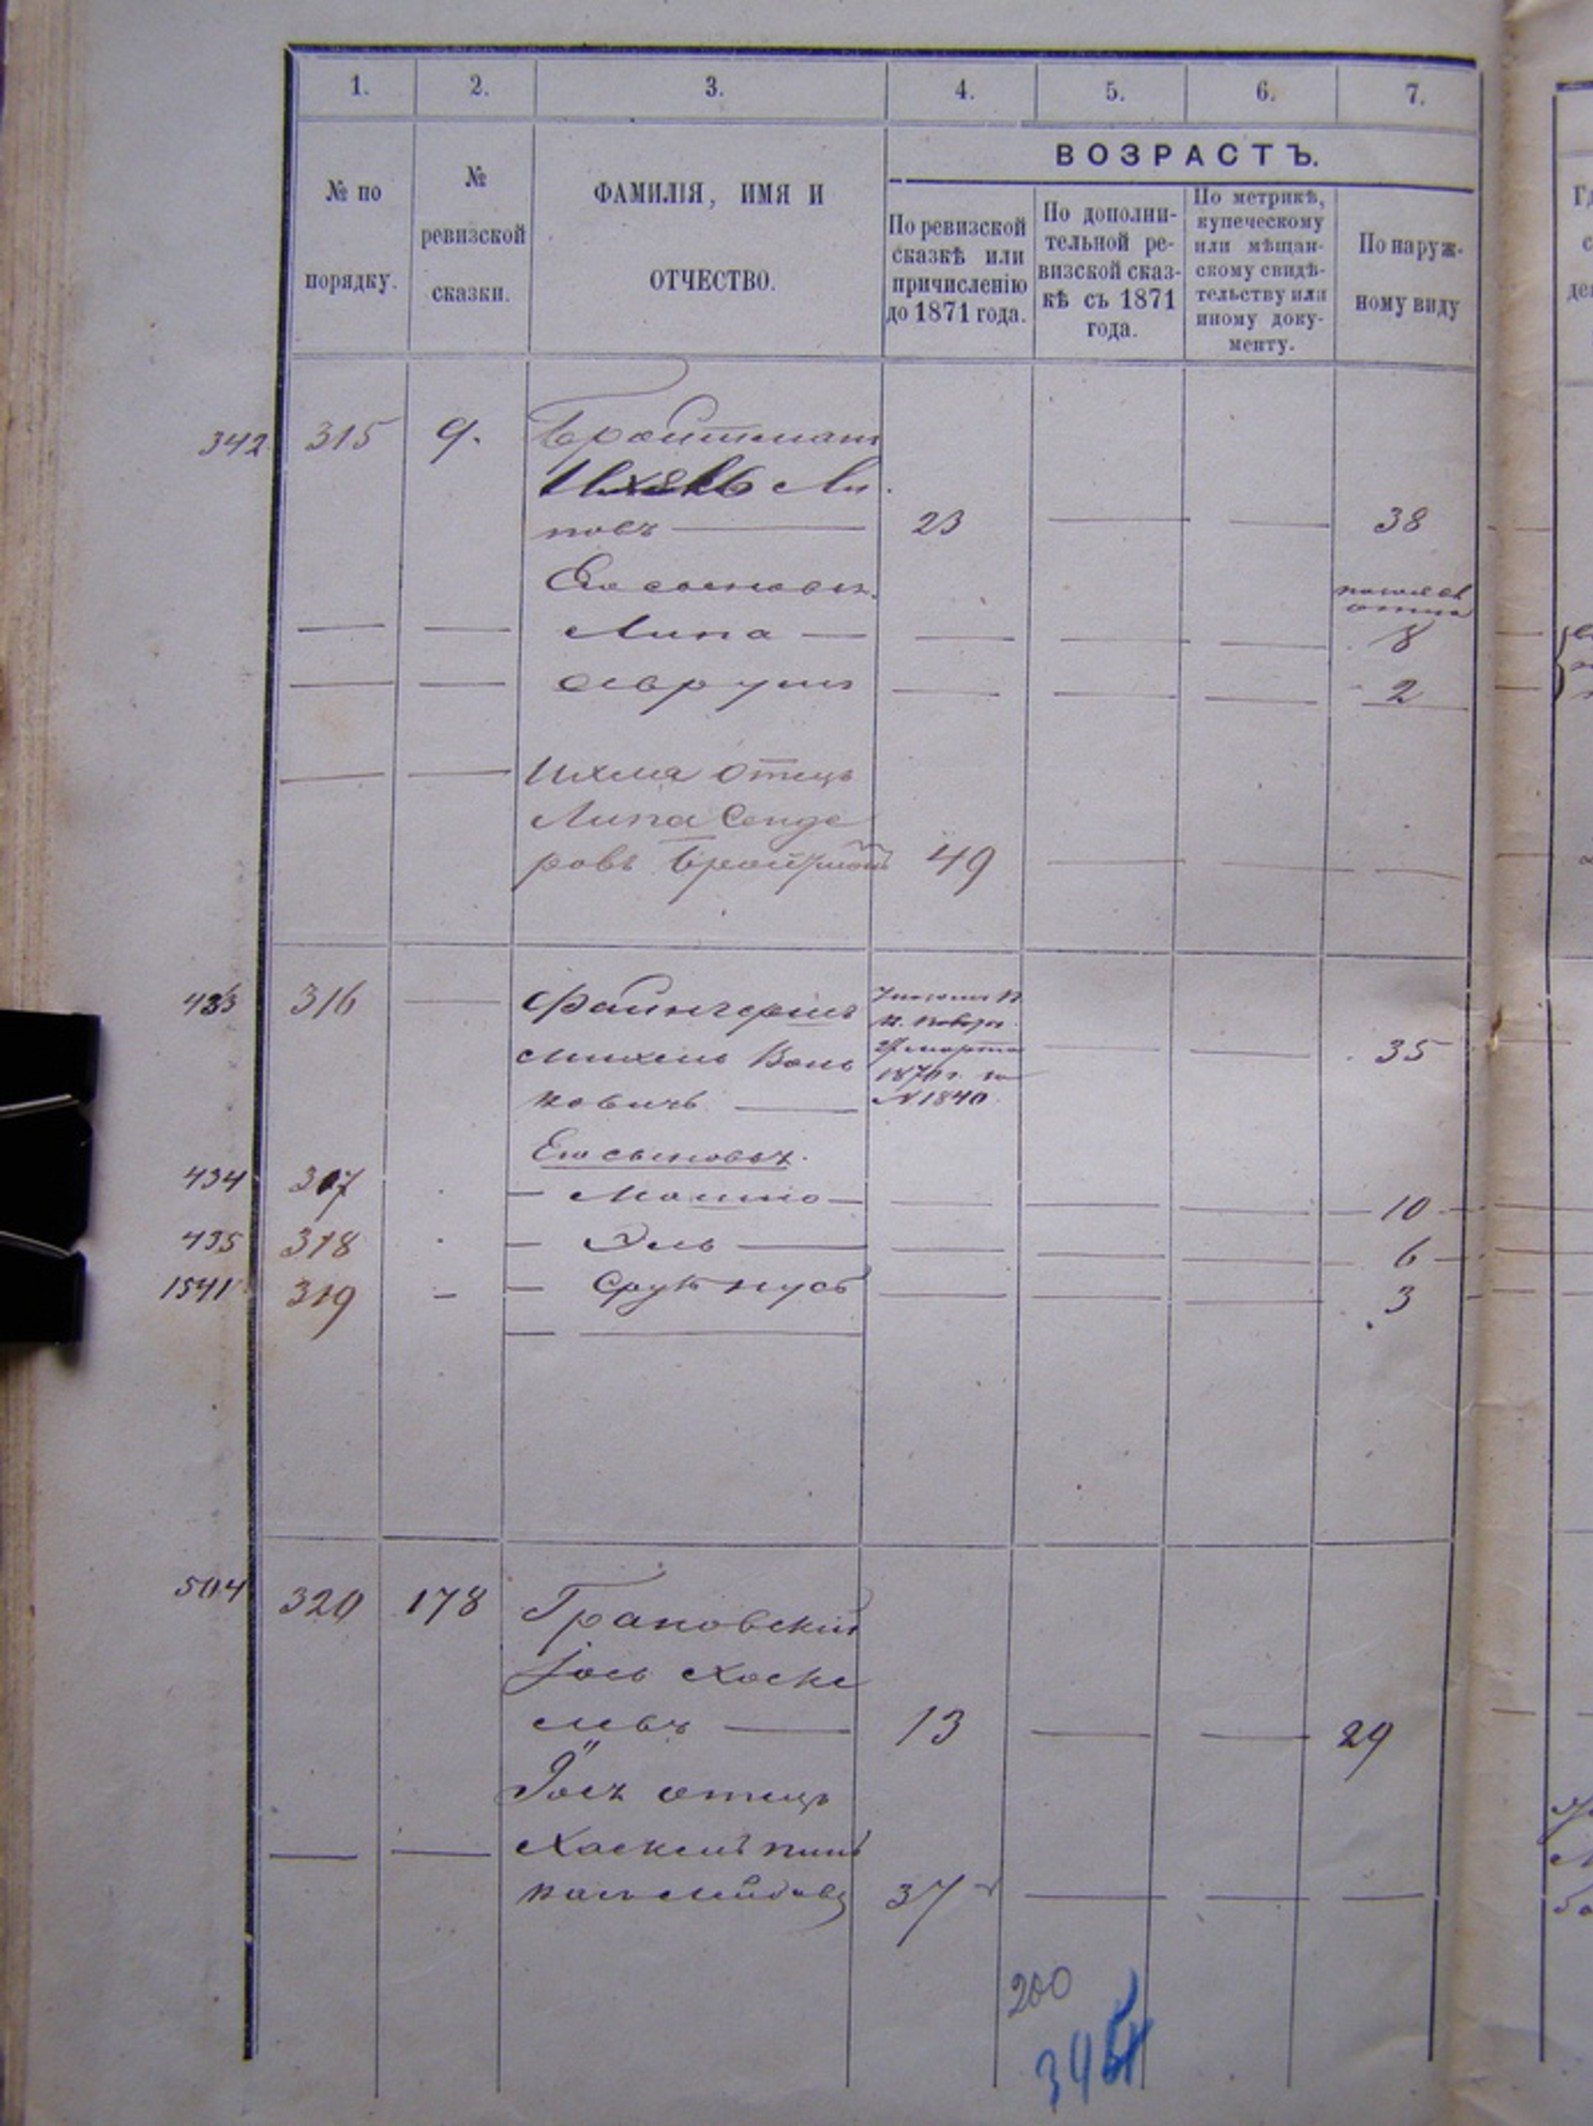 1. 2. 3. 4. 5. 6. 7.
№ по порядку.
№ ревизской сказки.
ФАМИЛІЯ, ИМЯ И ОТЧЕСТВО.
ВОЗРАСТЪ.
По ревизской сказкѣ или причисленію до 1871 года.
По дополнительной ревизской сказкѣ съ 1871 года.
По метрикѣ, купеческому или мѣщанскому свидѣтельству или иному документу.
По наружному виду
342 315 9. Бройтман
Ли
повъ — 23 — — 38
Его сыновья
— — Липа — — — — 8
— — Аврум — — — 2
— — Ихеля отецъ
Липа Сенде
ровъ Бройтман 49 — — —
433 316 — Файнгершъ
Михель Воль 35
ковичъ —
27 марта
1870 г. за
№ 1840
Его сыновья.
434 317 — Мошко — — — — 10
435 318 — Эль — — — — 6
1541 319 — — Срулъ нусъ — — — — 3
504 320 178 Грановский
Іось Хаске
левъ — 13 — — 29
Іося отецъ
— — Хаскель Пинь
37 — — —
200
345